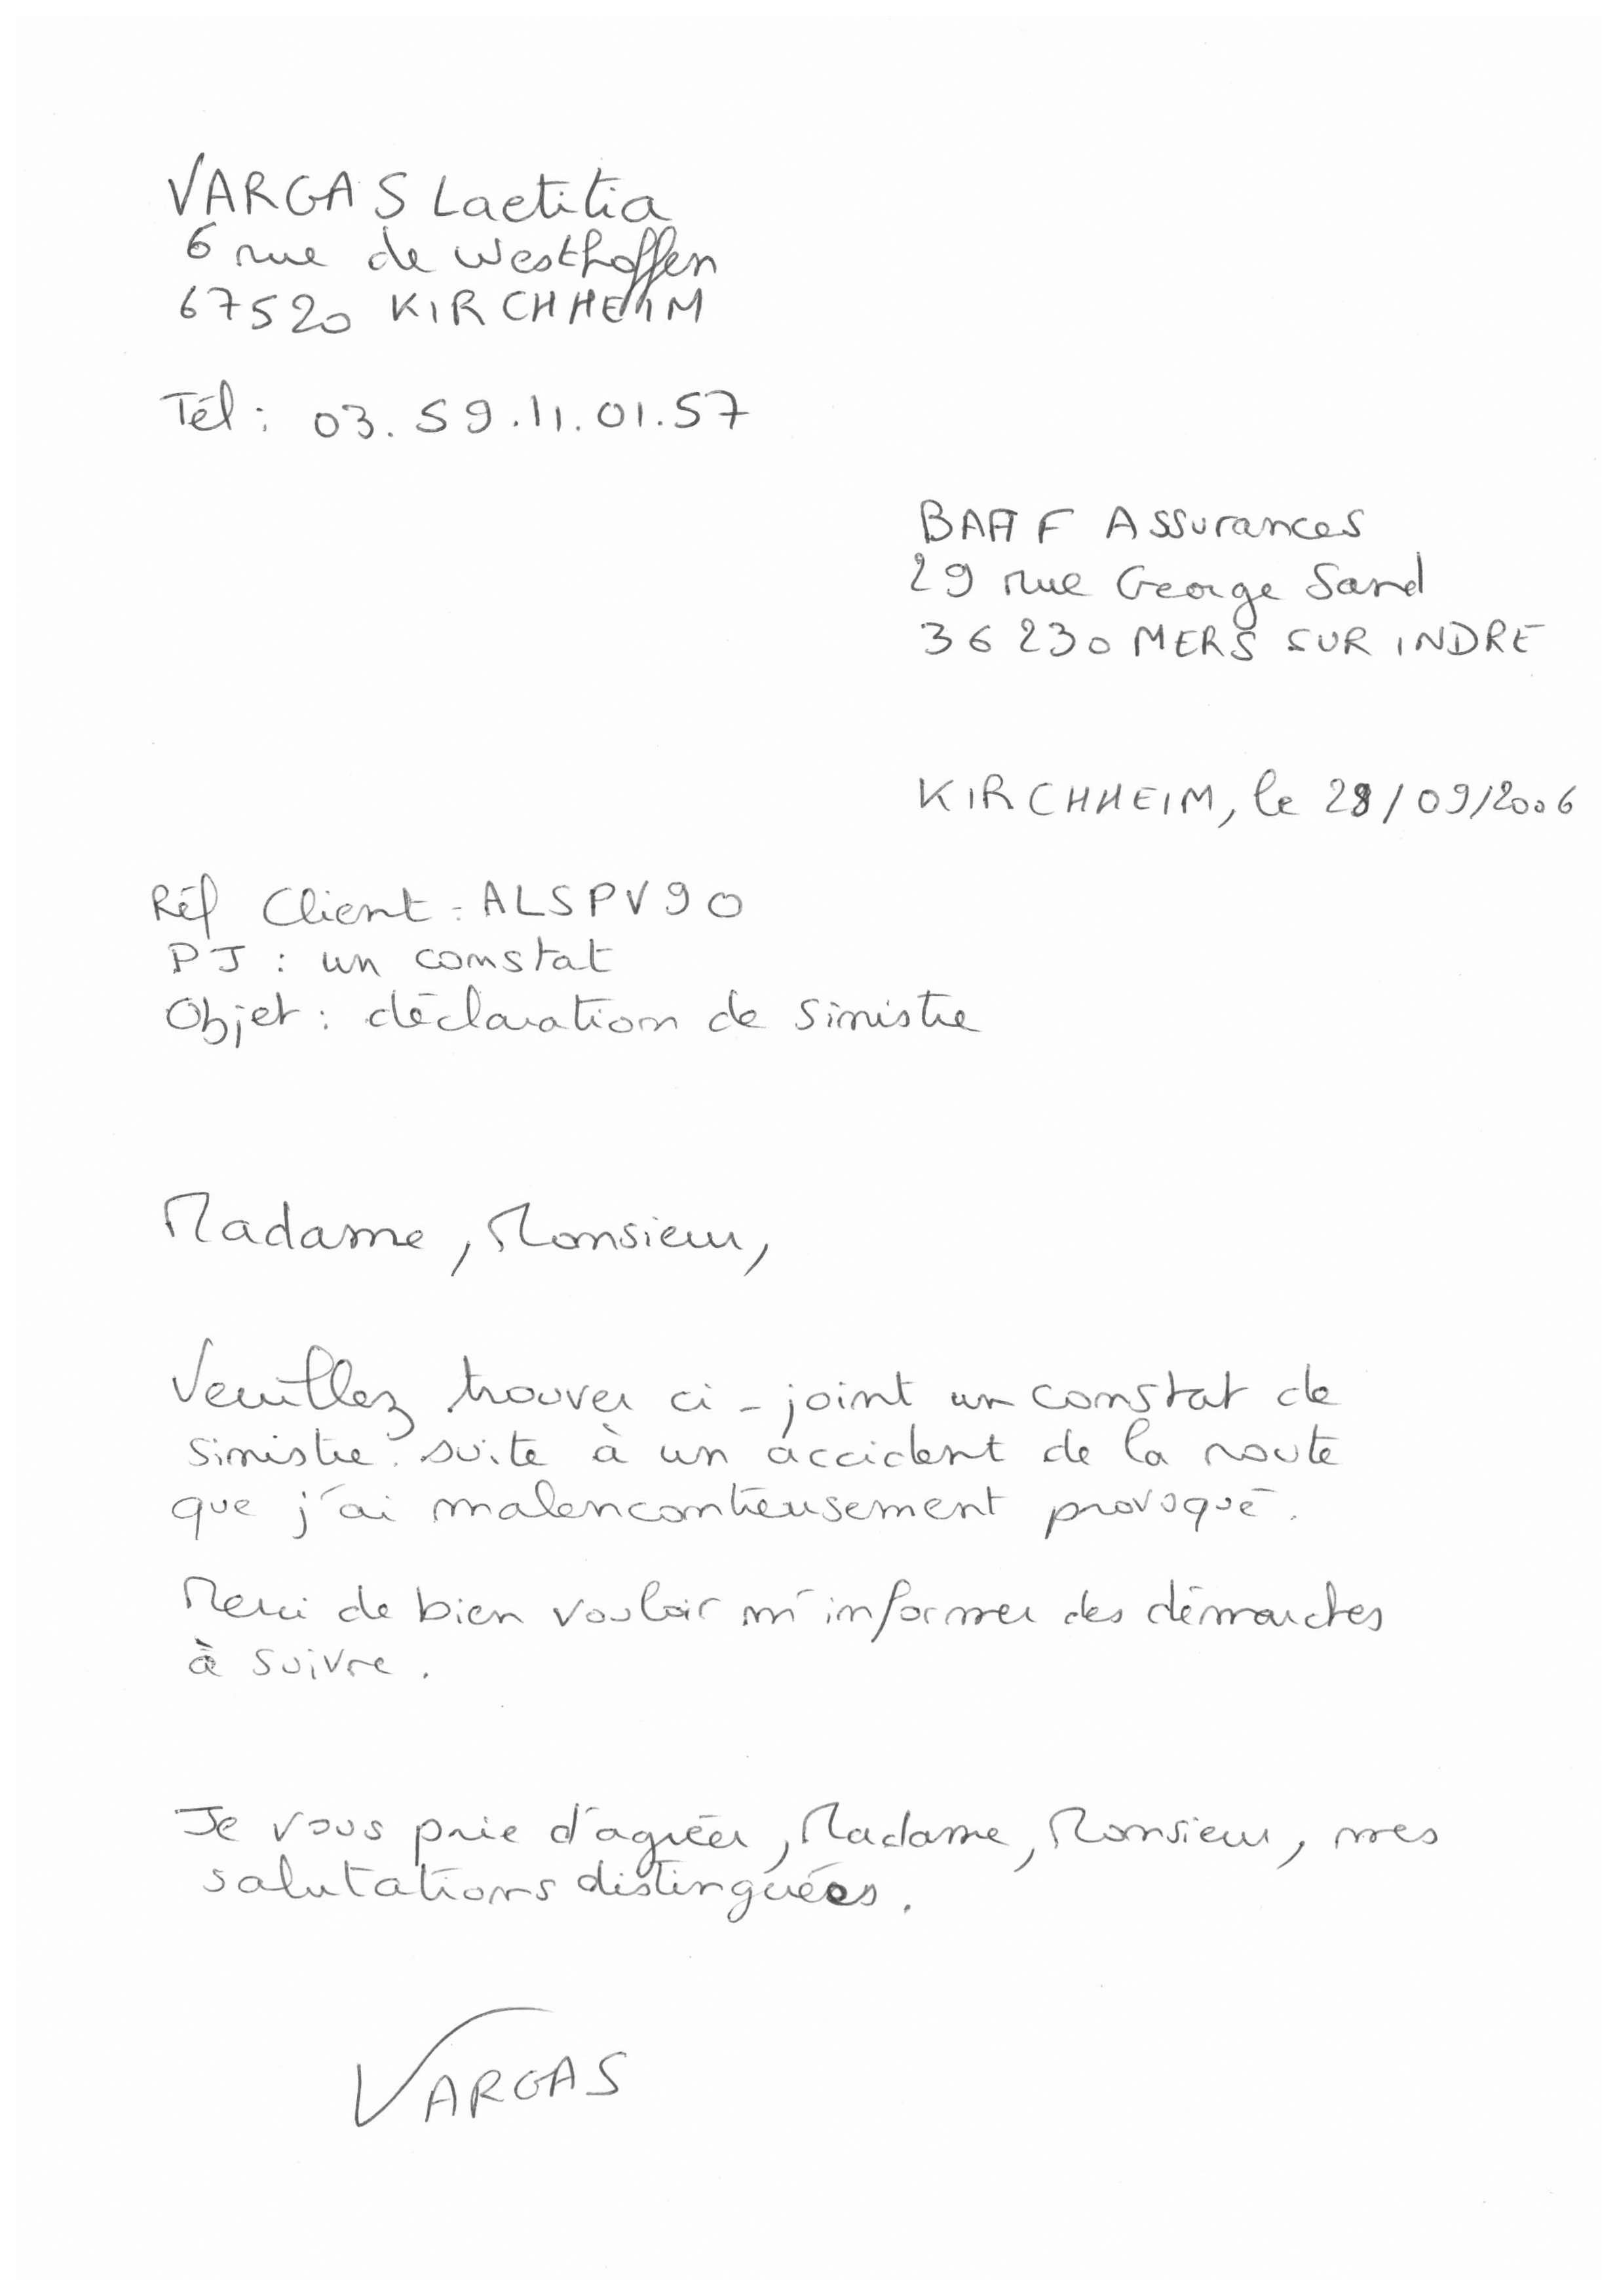 VARGAS Laetitia
6 rue de Westhoffen
67520 KIRCHHEIM
Tél : 03.59.11.01.57
BAAF Assurances
29 rue George Sand
36230 MERS SUR INDRE
KIRCHHEIM, le 28/09/2006
Réf Client : ALSPV90
PJ : un constat
Objet : déclaration de sinistre
Madame, Monsieur,
Veuillez trouver ci-joint un constat de
sinistre suite à un accident de la route
que j'ai malencontreusement provoqué.
Merci de bien vouloir m'informer des démarches
à suivre.
Je vous prie d'agréer, Madame, Monsieur, mes
salutations distinguées.
VARGAS